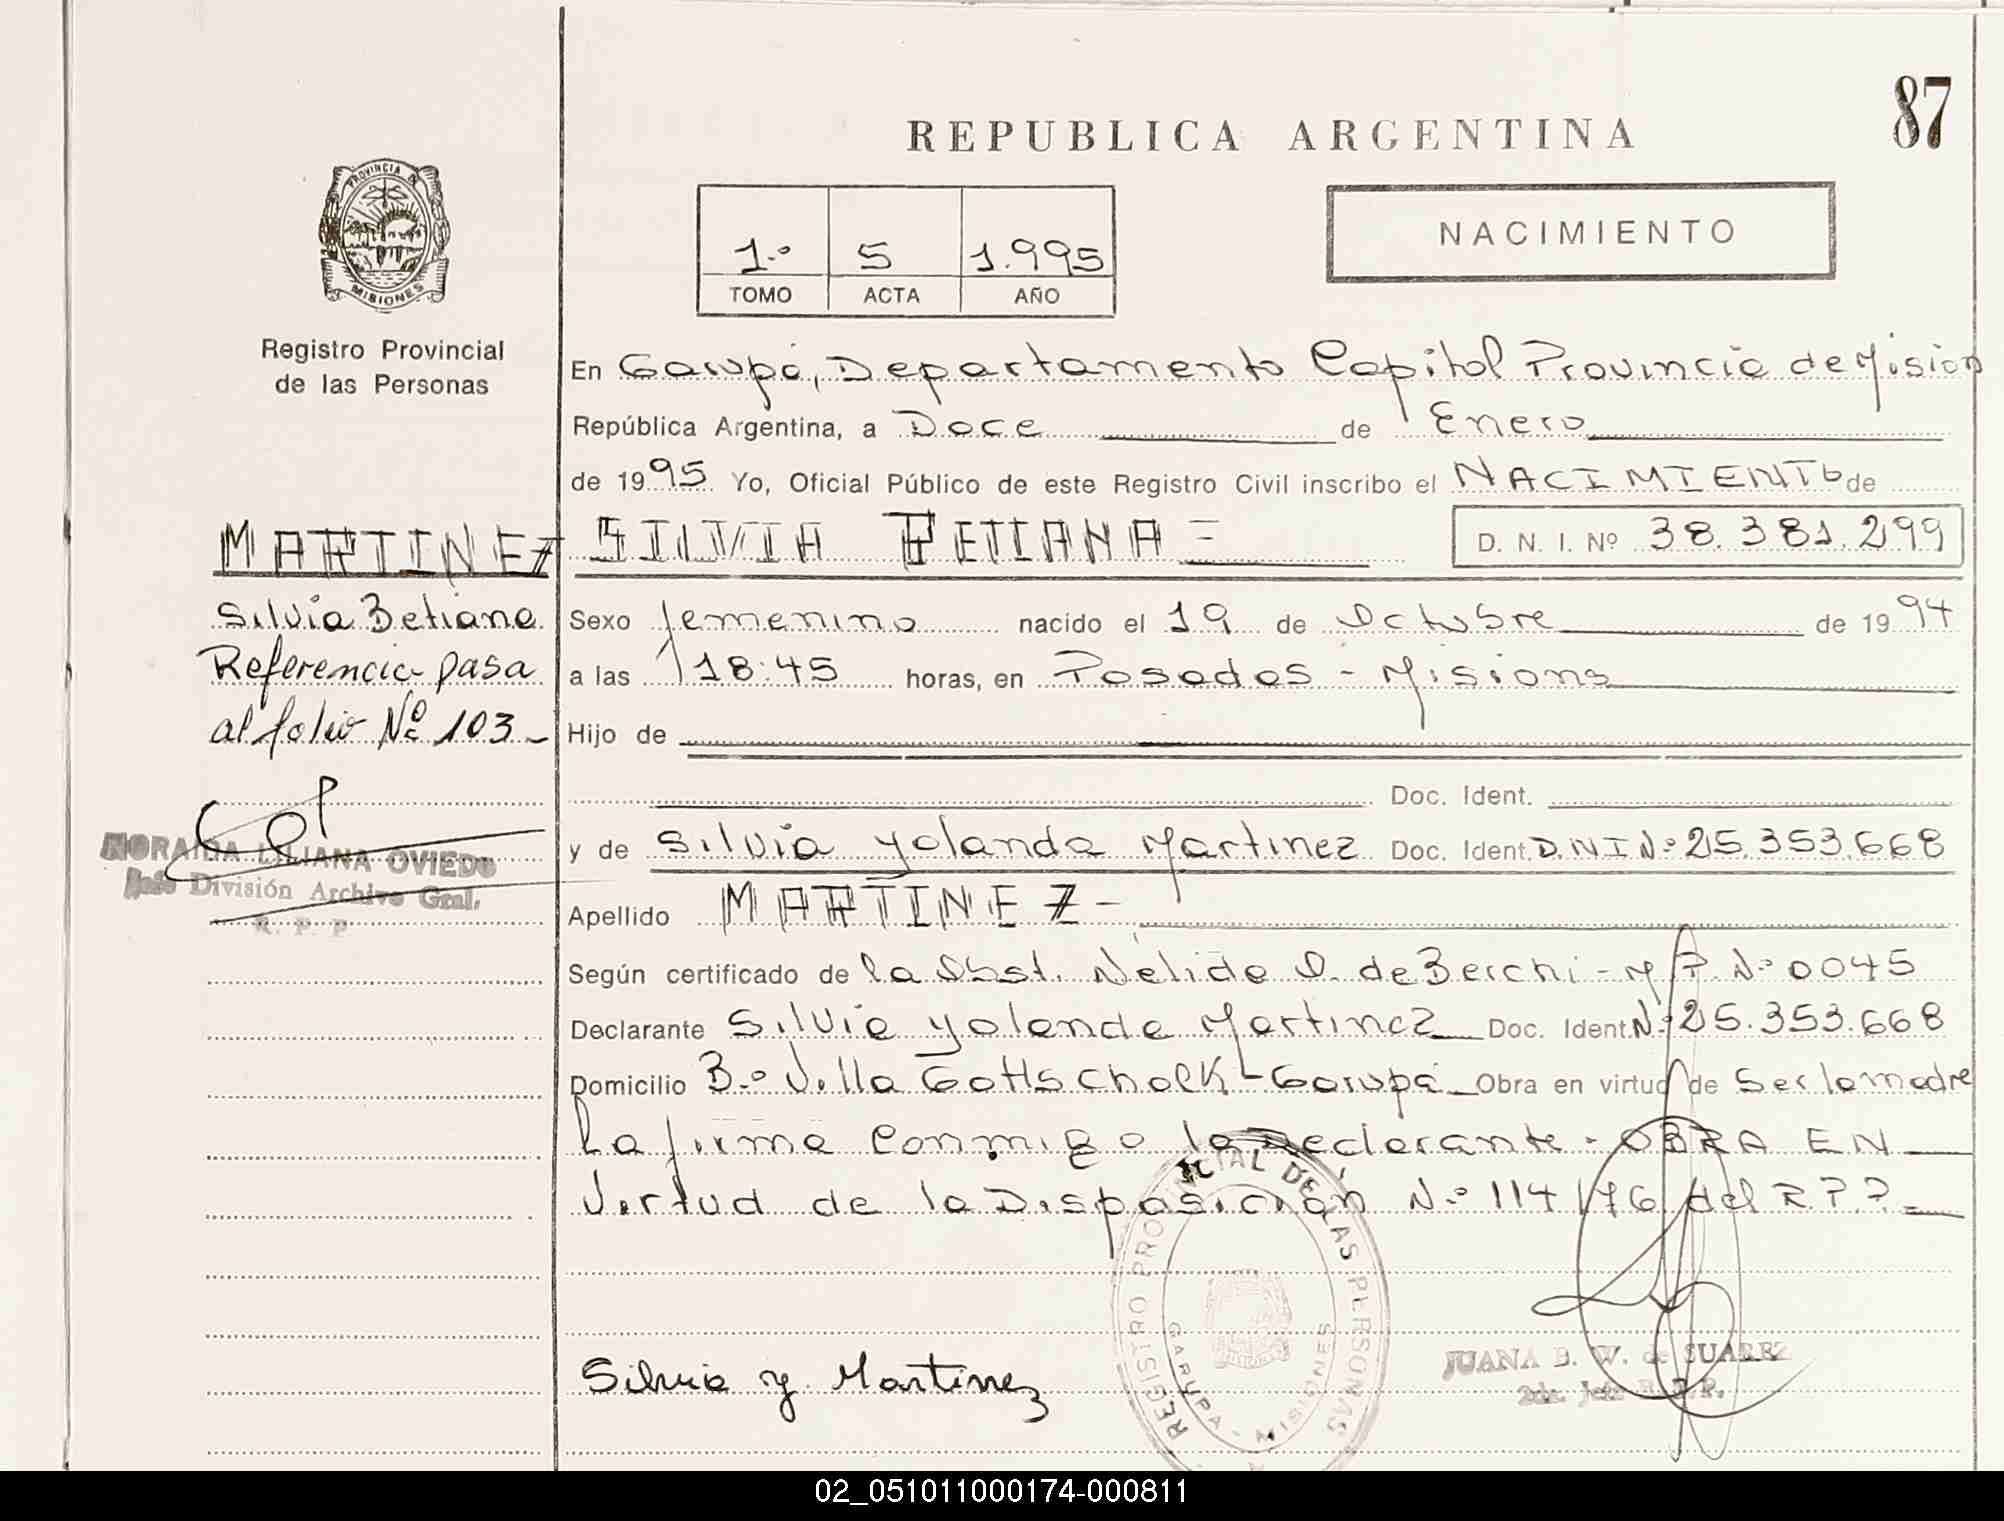 87
REPUBLICA ARGENTINA
NACIMIENTO
1.º 5 1.995
TOMO ACTA AÑO
PROVINCIA DE
MISIONES
Registro Provincial
de las Personas
En Garupá, Departamento Capital Provincia de Mision
República Argentina, a Doce de Enero
de 1995 Yo, Oficial Público de este Registro Civil inscribo el NACIMIENTO de
MARTINEZ SILVIA BETIANA =
D. N. I. Nº 38.381.299
Silvia Betiana
Referencia pasa
al folio Nº 103-
NORAIDA LILIANA OVIEDO
Jefe División Archivo Gral.
R. P. P
Sexo femenino nacido el 19 de Octubre de 1994
a las 18:45 horas, en Posadas - Misions
Hijo de
Doc. Ident.
y de Silvia Yolanda Martinez Doc. Ident. D.N.I Nº 25.353.668
Apellido MARTINEZ-
Según certificado de la Obst. Nélida O. de Berchi - M P. Nº 0045
Declarante Silvia Yolanda Martinez Doc. Ident. Nº 25.353.668
Domicilio Bº Villa Gottschalk - Garupá Obra en virtud de Ser la madre
La firma Conmigo la Declarante - OBRA EN
Virtud de la Disposición Nº 114/76 del R.P.P.
Silvia Y. Martinez
REGISTRO PROVINCIAL DE LAS PERSONAS
GARUPA - MISIONES
JUANA B. W. de SUAREZ
2da. Jefe R. P. P.
02_051011000174-000811